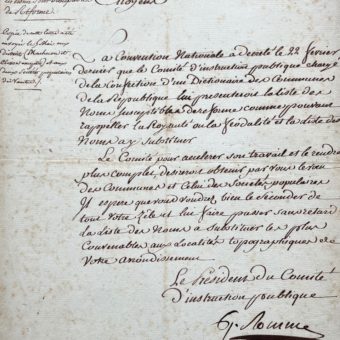 de Réforme
Citoyens
La Convention Nationale a décrété le 22 février
dernier que le Comité d'instruction publique chargé
de la Confection d'un Dictionnaire des Communes
de la République lui présenterois la Liste des
Noms susceptibles de réforme comme pouvant
rappeller la Royauté ou la féodalité et la liste des
Noms a y Substituer
Le Comité pour accélerer son travail et le rendre
plus Complet, désireroit obtenir par vous le vœu
des Communes et Celui des Sociétés populaires
Il espere que vous voudrez bien le Seconder de
tout Votre Zèle et lui faire passer sans retard
la Liste des Noms a Substituer les plus
Convenables aux Localités topographiques de
Votre arrondissement
Le Président du Comité
d'instruction publique
G. Romme